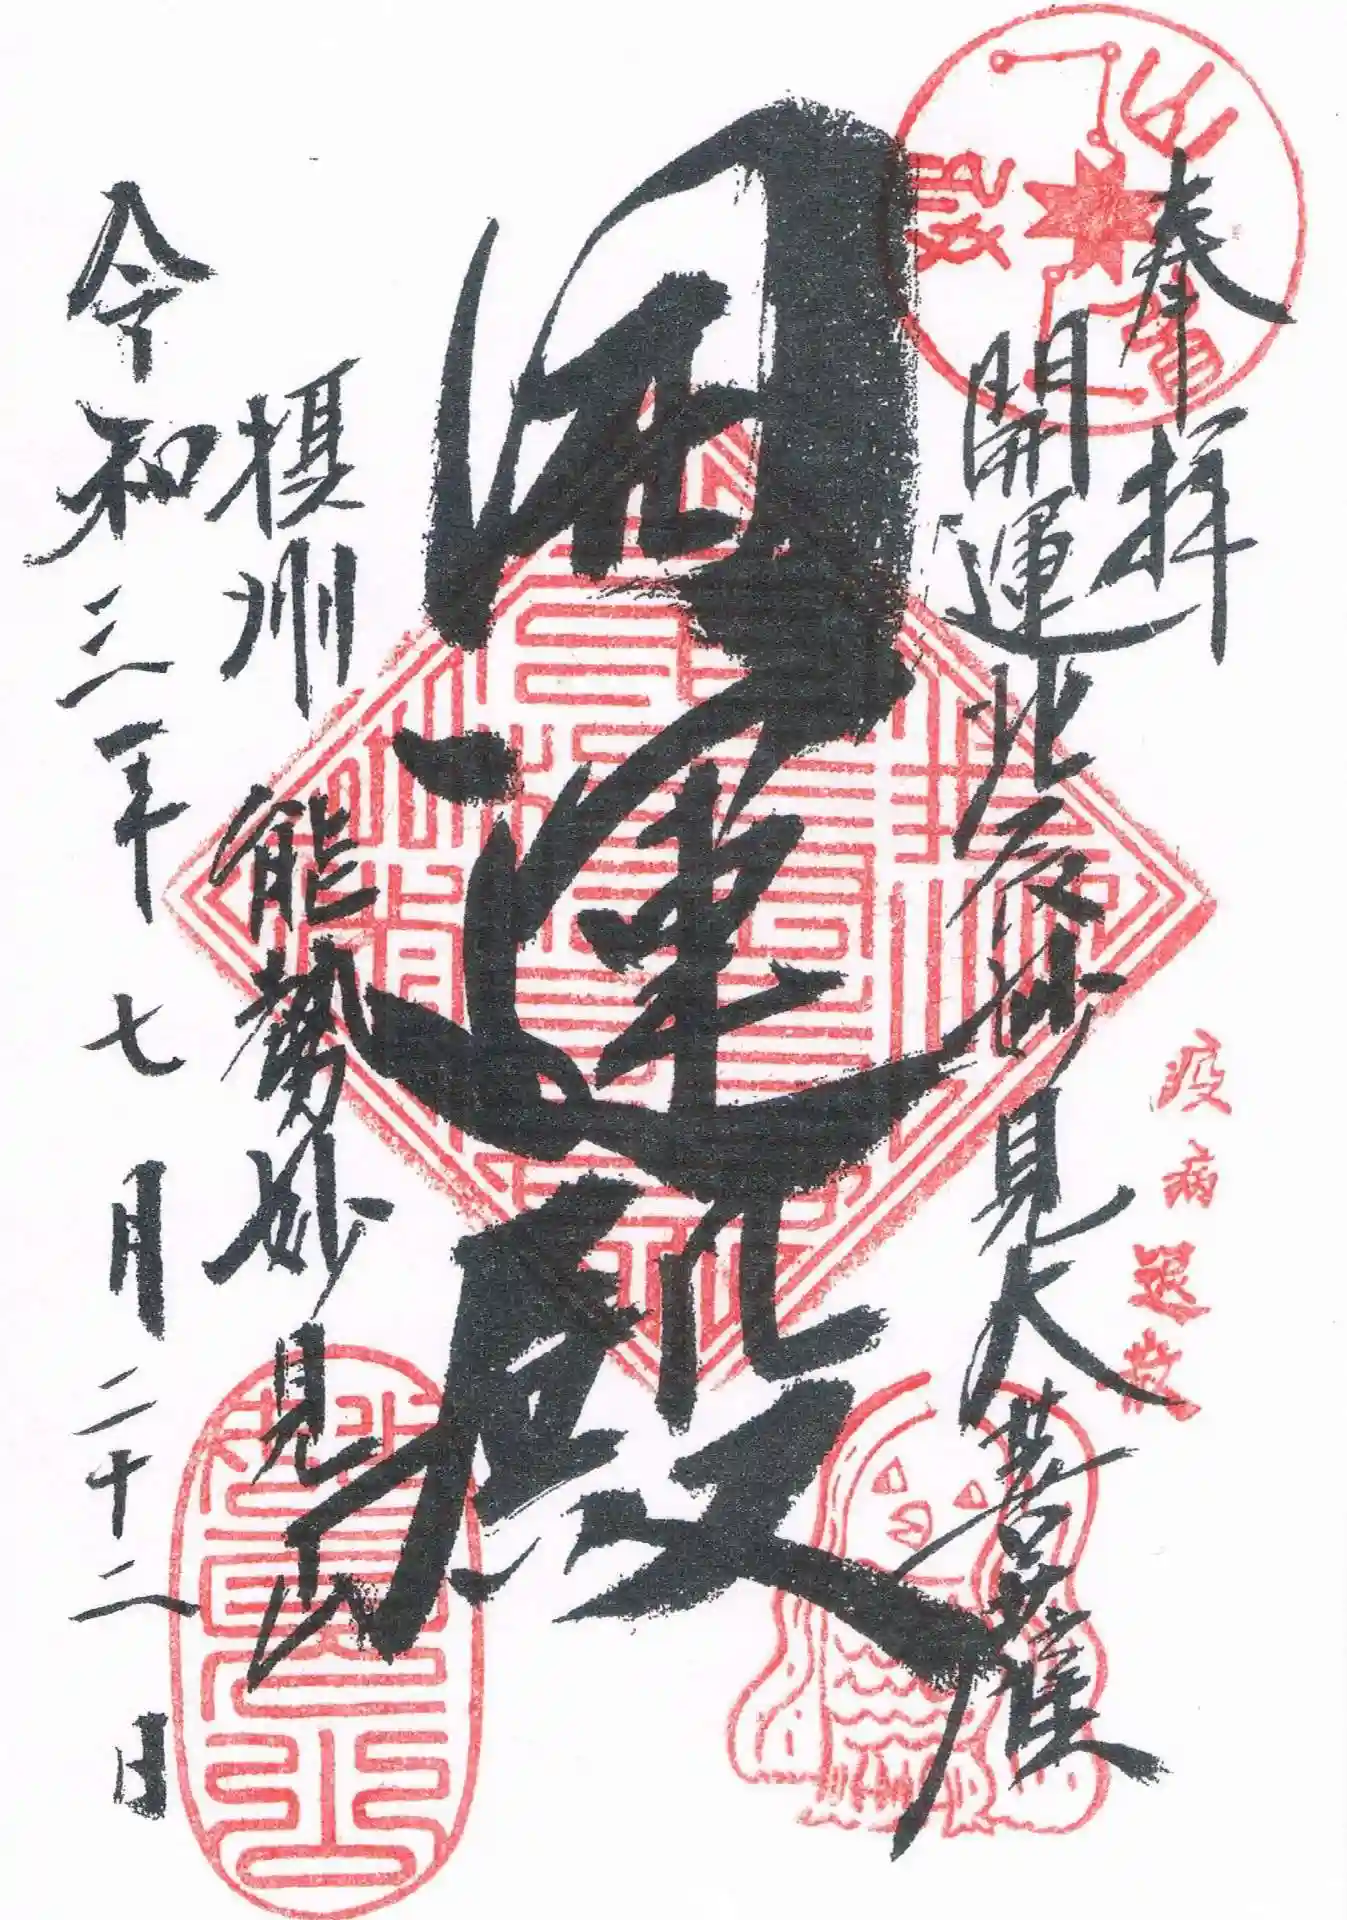 奉拝
開運北辰妙見大菩薩
疫病退散
開運殿
摂州 能勢妙見山
令和三年 七月 二十二日